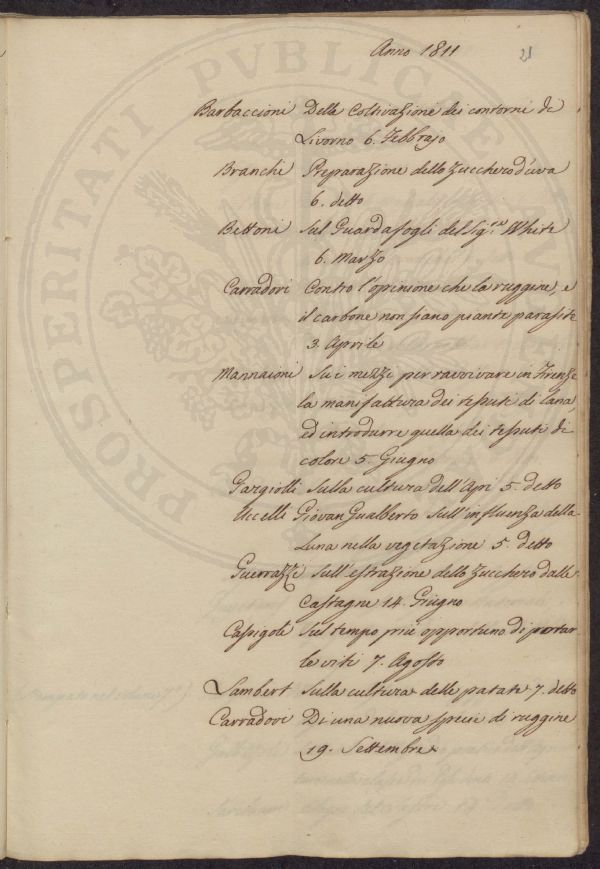 Anno 1811
21
Barbaccioni Della Coltivazione dei contorni di
Livorno 6. Febbrajo
Branchi Preparazione dello Zucchero d'uva
6. detto
Bettoni Sul Guardafogli del Sig.re White
6. Marzo
Carradori Contro l'opinione che la ruggine, e
il carbone non siano piante parasite
3. Aprile
Mannaioni Su i mezzi per ravvivare in Firenze
la manifattura dei tessuti di lana,
ed introdurre quella dei tessuti di
colore 5. Giugno
Gargiolli Sulla cultura dell'Api 5. detto
Uccelli Giovan Gualberto Sull'influenza della
Luna nella vegetazione 5. detto
Guerrazzi Sull'estrazione dello Zucchero dalle
Castagne 14. Giugno
Caspigoli Sul tempo più opportuno di potar
le viti 7. Agosto
Lambert Sulla cultura delle patate 7. detto
Carradori Di una nuova specie di ruggine
19. Settembre
PROSPERITATI PUBLICAE